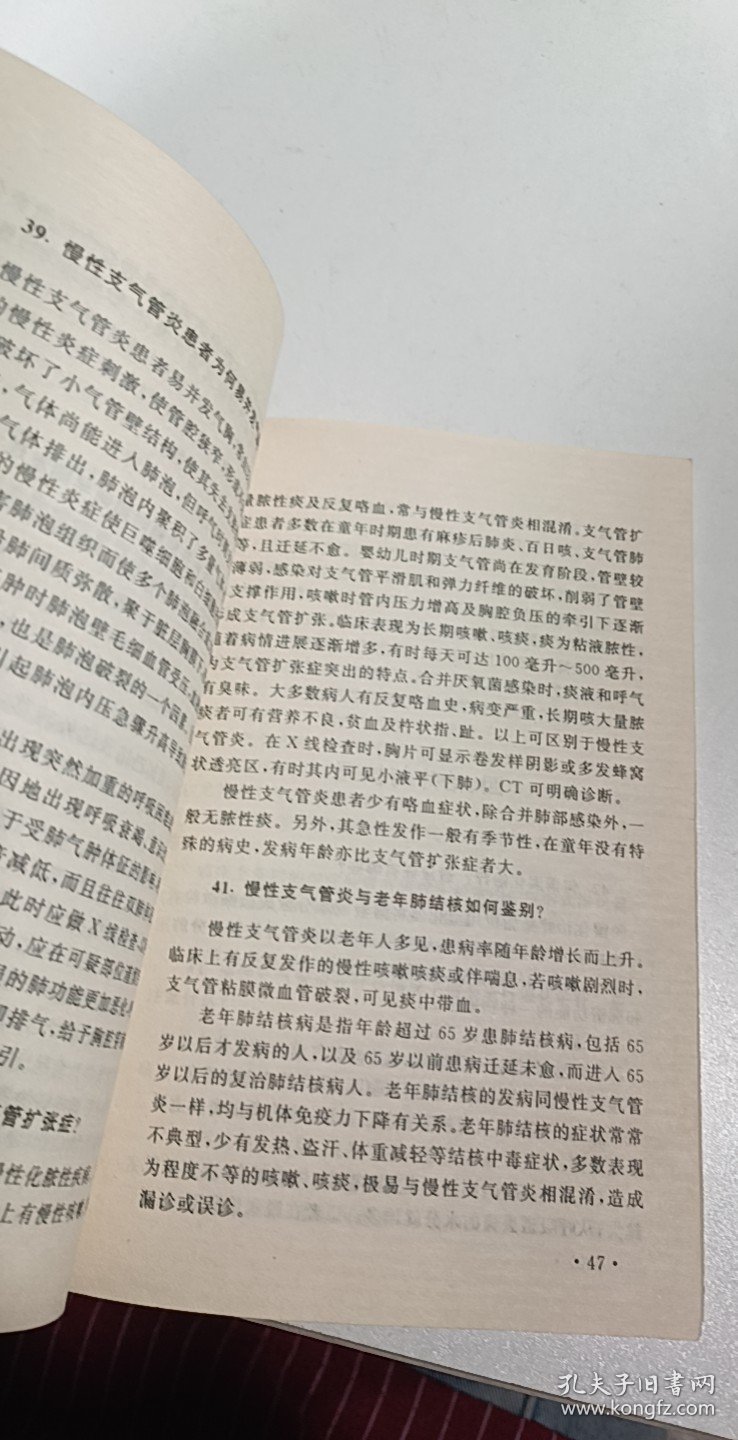 39. 慢性支气管炎患者为何易并发气
慢性支气管炎患者易并发气胸,
的慢性炎症刺激,使管腔狭窄,形
破坏了小气管壁结构,使其失去
,气体尚能进入肺泡,但呼气时
气体排出,肺泡内聚积了多量
的慢性炎症使巨噬细胞和白细
害肺泡组织而使多个肺泡融合
肺间质弥散,聚于脏层胸膜下
肿时肺泡壁毛细血管受压,
,也是肺泡破裂的一个因素。
引起肺泡内压急骤升高
出现突然加重的呼吸困难
因地出现呼吸衰竭、
于受肺气肿体征的影响
音减低,而且往往双肺
此时应做X线检查
动,应在可疑部位
的肺功能更加恶化
即排气,给予胸腔
引。
管扩张症?
慢性化脓性疾病
上有慢性咳嗽
量脓性痰及反复咯血,常与慢性支气管炎相混淆。支气管扩
症患者多数在童年时期患有麻疹后肺炎、百日咳、支气管肺
等,且迁延不愈。婴幼儿时期支气管尚在发育阶段,管壁较
薄弱,感染对支气管平滑肌和弹力纤维的破坏,削弱了管壁
支撑作用,咳嗽时管内压力增高及胸腔负压的牵引下逐渐
成支气管扩张。临床表现为长期咳嗽、咳痰,痰为粘液脓性,
随着病情进展逐渐增多,有时每天可达100毫升～500毫升,
为支气管扩张症突出的特点。合并厌氧菌感染时,痰液和呼气
有臭味。大多数病人有反复咯血史,病变严重,长期咳大量脓
痰者可有营养不良,贫血及杵状指、趾。以上可区别于慢性支
气管炎。在X线检查时,胸片可显示卷发样阴影或多发蜂窝
状透亮区,有时其内可见小液平(下肺)。CT可明确诊断。
慢性支气管炎患者少有咯血症状,除合并肺部感染外,一
般无脓性痰。另外,其急性发作一般有季节性,在童年没有特
殊的病史,发病年龄亦比支气管扩张症者大。
41. 慢性支气管炎与老年肺结核如何鉴别?
慢性支气管炎以老年人多见,患病率随年龄增长而上升。
临床上有反复发作的慢性咳嗽咳痰或伴喘息,若咳嗽剧烈时,
支气管粘膜微血管破裂,可见痰中带血。
老年肺结核病是指年龄超过65岁患肺结核病,包括65
岁以后才发病的人,以及65岁以前患病迁延未愈,而进入65
岁以后的复治肺结核病人。老年肺结核的发病同慢性支气管
炎一样,均与机体免疫力下降有关系。老年肺结核的症状常常
不典型,少有发热、盗汗、体重减轻等结核中毒症状,多数表现
为程度不等的咳嗽、咳痰,极易与慢性支气管炎相混淆,造成
漏诊或误诊。
·47·
孔夫子旧书网
www.kongfz.com